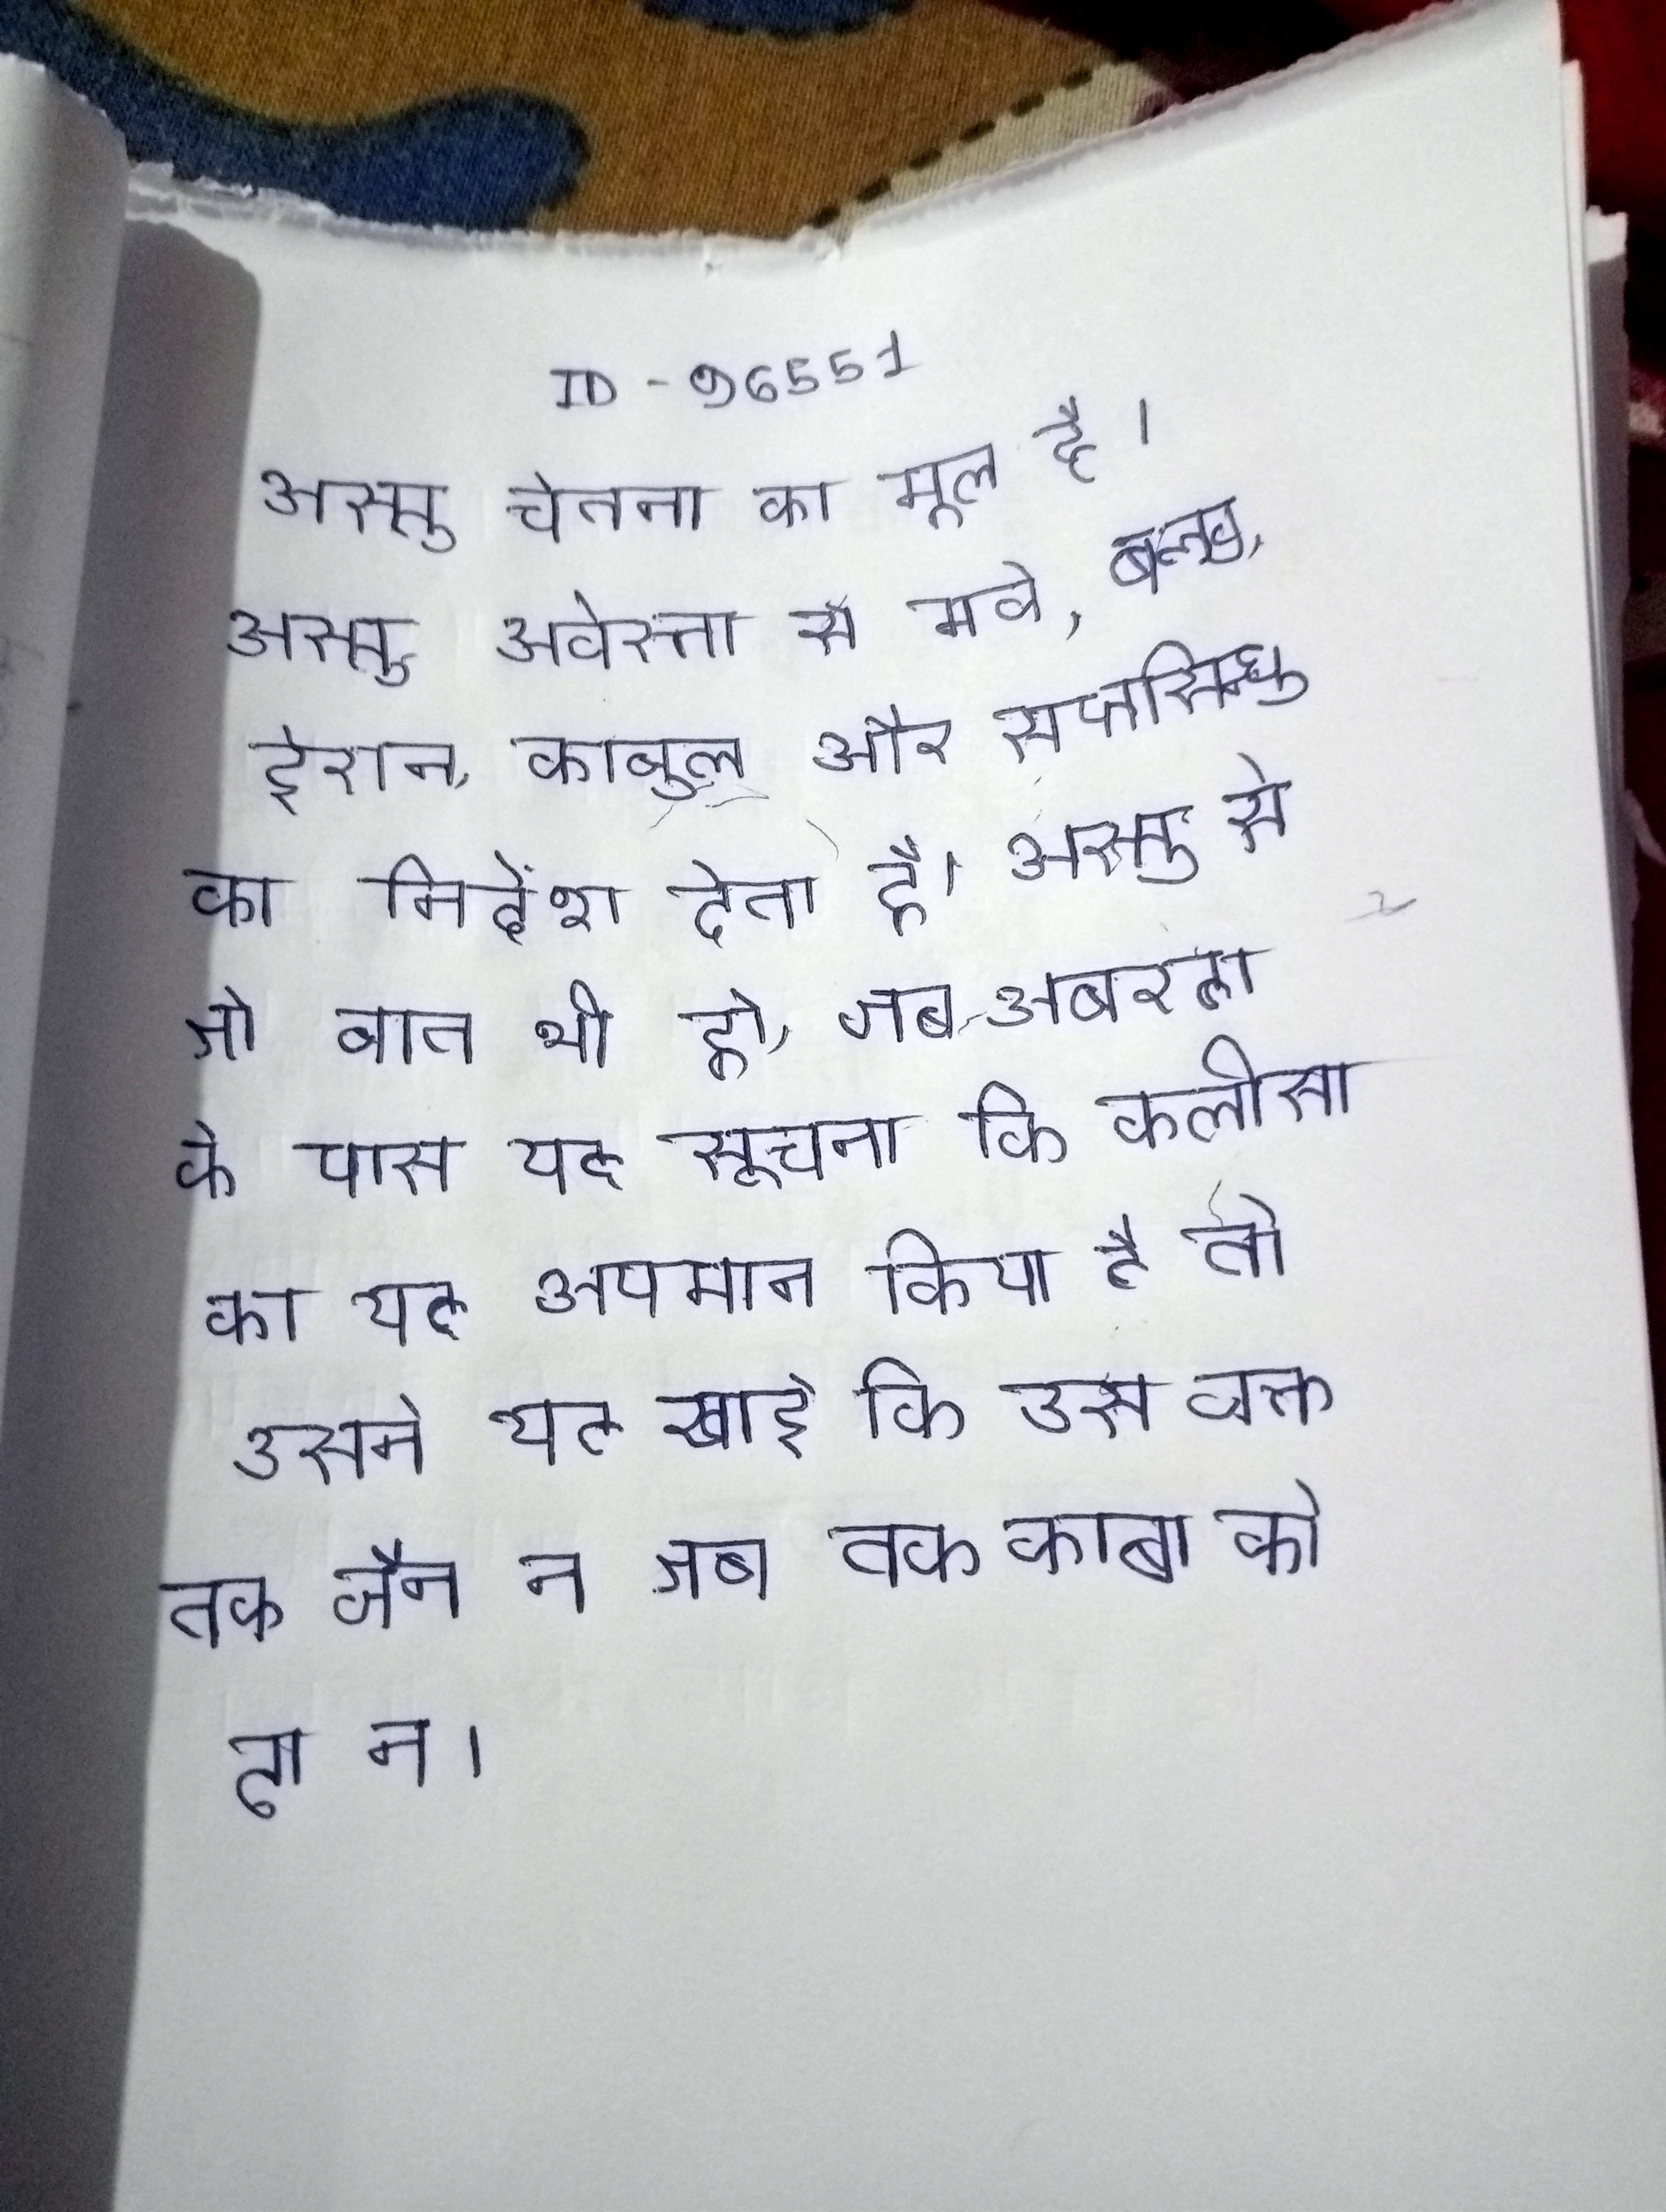 ID - 96551
अस्सु चेतना का मूल है।
अस्सु अवेस्ता से मवे, बल्ख,
ईरान, काबुल और सप्तसिन्धु
का निर्देश देता है। अस्सु से
जो बात भी हो, जब अबरहा
के पास यह सूचना कि कलीसा
का यह अपमान किया है तो
उसने यह खाई कि उस वक्त
तक जैन न जब तक काबा को
ढा न।